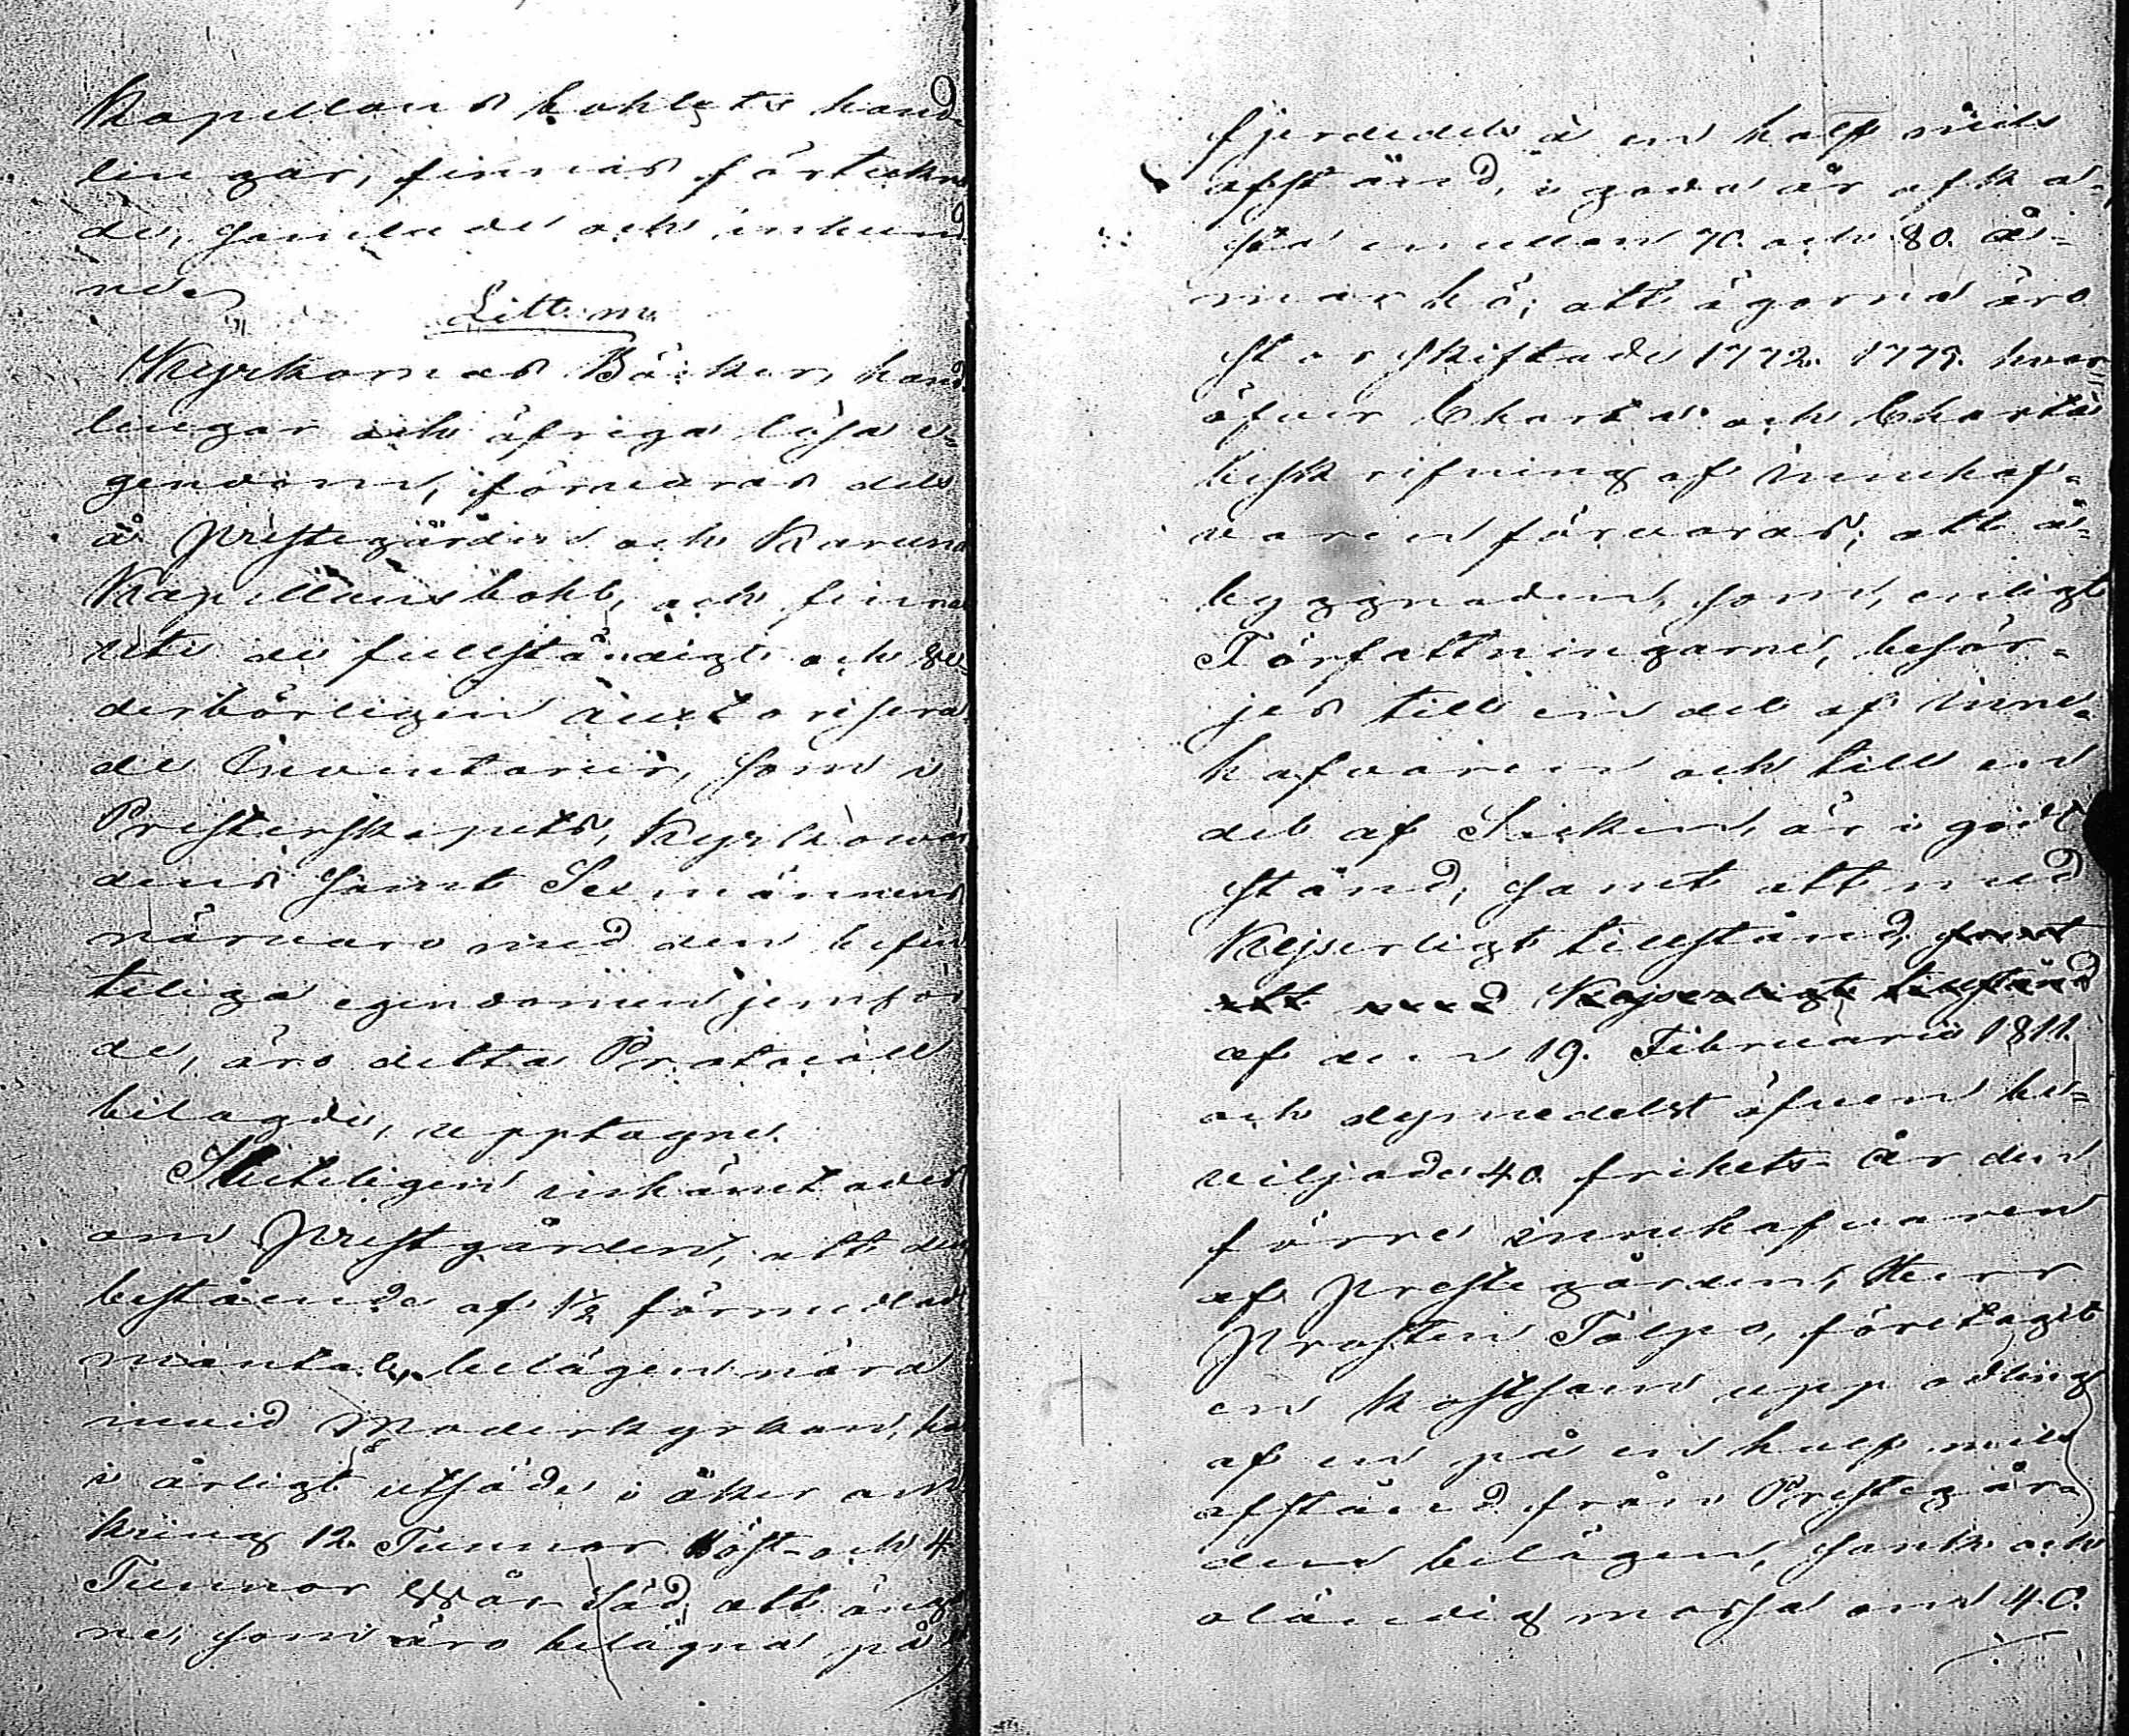 Kapellans bohlets hand-
lingar, finnas förtekna
de, samlade och inbund
ne.
Litt. m.
Kyrkornas Böcker, hand
lingar och öfriga lösa e-
gendom, förvaras dels
å Prestegården och Karuna
Kapellansbohl, och finnas
uti de fullständigt och ve-
derbörligen auctorisera
de Inventarier, som i
Presterskapets, Kyrkowär
dens samt Sexmännens
närvaro med den befin
teliga egendomen jemför
de, äro detta Protocoll
bilagde, upptagne.
Sluteligen inhämtades
om Prestgården, att den
bestående af 1/2 förmedlad
mantal, belägen nära
invid Moderkyrkan, ha
i årligt utsäde i åker om
kring 12. Tunnor höst- och 4
Tunnor Wår Säd; att äng
ne, som äro belägna på
fjerdedels à en half mils
afstånd, i goda år afka-
sta emellan 70. och 80. å-
mar hö; att ägorna äro
storskiftade 1772. 1779. hvar-
öfver Charta och Charta
beskrifning af innehaf-
varen förvaras; att å-
byggnaden, som, enligt
Författningarne, besör-
jes till en del af inne-
hafvaren och till en
del af Socken, är i godt
stånd, samt att med
Kejserligt tillstånd, samt
att med Kejserligt tillstånd
af den 19. Februarii 1811.
och dymedelst äfven be-
viljade 40. frihets år den
förre innehafvaren
af Prestegården, Herr
Prosten Tolpo, företagit
en kostsam uppodling
af en på en half mils
afstånd från Prestegår-
den belägen, sank och
oländig mossa om 40.